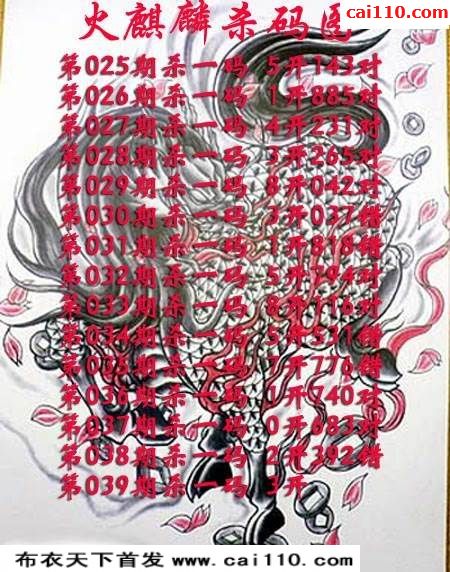 cai110.com
火麒麟杀码区
第025期杀一码 5开143对
第026期杀一码 1开885对
第027期杀一码 4开231对
第028期杀一码 3开265对
第029期杀一码 8开042对
第030期杀一码 3开037错
第031期杀一码 1开818错
第032期杀一码 5开794对
第033期杀一码 8开716对
第034期杀一码 5开531错
第035期杀一码 7开776错
第036期杀一码 1开740对
第037期杀一码 0开683对
第038期杀一码 2开392错
第039期杀一码 3开
布衣天下首发 www.cai110.com